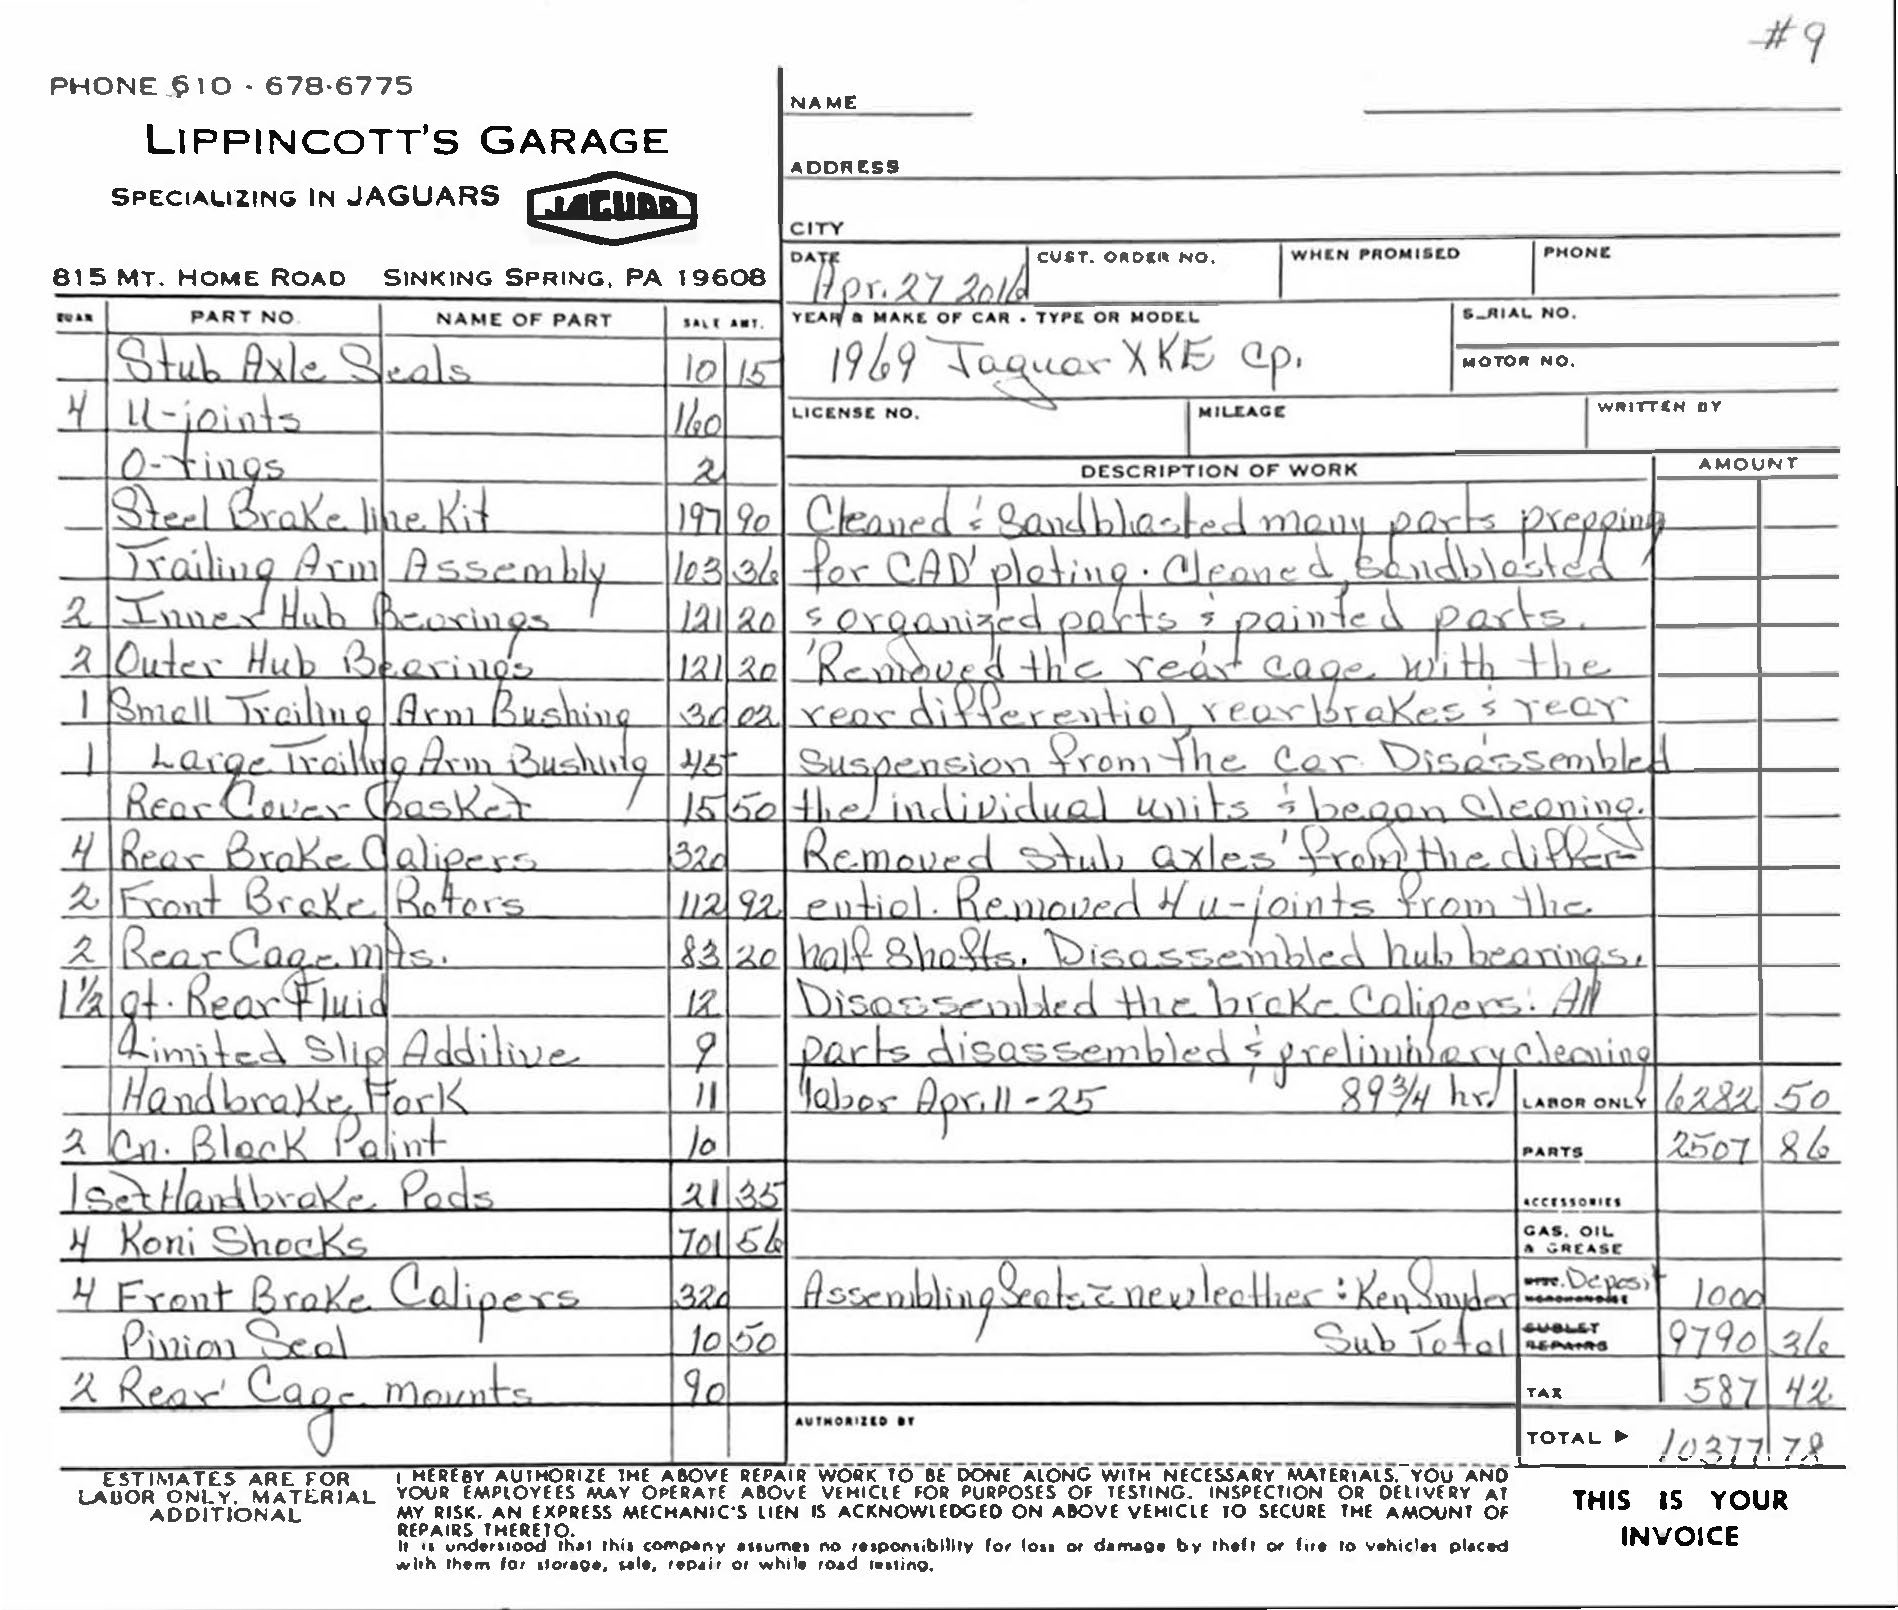 #9
PHONE 610 - 678-6775
LIPPINCOTT'S GARAGE
SPECIALIZING IN JAGUARS JAGUAR
815 MT. HOME ROAD SINKING SPRING, PA 19608
NAME
ADDRESS
CITY
DATE Apr. 27 2016 CUST. ORDER NO. WHEN PROMISED PHONE
YEAR & MAKE OF CAR - TYPE OR MODEL 1969 Jaguar XKE cp.
SERIAL NO.
MOTOR NO.
LICENSE NO. MILEAGE WRITTEN BY
QUAN PART NO. NAME OF PART SALE AMT.
Stub Axle Seals 10 15
4 U-joints 160
O-rings 2
Steel Brake line Kit 197 90
Trailing Arm Assembly 103 36
2 Inner Hub Bearings 121 20
2 Outer Hub Bearings 121 20
1 Small Trailing Arm Bushing 30 02
1 Large Trailing Arm Bushing 45
Rear Cover Gasket 15 50
4 Rear Brake Calipers 320
2 Front Brake Rotors 112 92
2 Rear Cage mts. 83 20
1½ qt. Rear Fluid 12
Limited Slip Additive 9
Handbrake Fork 11
2 Cn. Black Paint 10
1 set Handbrake Pads 21 35
4 Koni Shocks 701 56
4 Front Brake Calipers 320
Pinion Seal 10 50
2 Rear Cage mounts 90
DESCRIPTION OF WORK AMOUNT
Cleaned & Sandblasted many parts prepping
for CAD plating. Cleaned, sandblasted
& organized parts & painted parts.
Removed the rear cage with the
rear differential, rear brakes & rear
suspension from the car. Disassembled
the individual units & began cleaning.
Removed stub axles from the differ-
ential. Removed 4 u-joints from the
half shafts. Disassembled hub bearings.
Disassembled the brake calipers. All
parts disassembled & preliminary cleaning
labor Apr. 11 - 25 89 3/4 hr. LABOR ONLY 6282 50
PARTS 2507 86
ACCESSORIES
GAS, OIL
& GREASE
Assembling Seats c̄ new leather : Ken Snyder MISC. Deposit MERCHANDISE 1000
Sub Total SUBLET REPAIRS 9790 36
TAX 587 42
AUTHORIZED BY
TOTAL ▶ 10377 78
ESTIMATES ARE FOR
LABOR ONLY, MATERIAL
ADDITIONAL
I HEREBY AUTHORIZE THE ABOVE REPAIR WORK TO BE DONE ALONG WITH NECESSARY MATERIALS. YOU AND
YOUR EMPLOYEES MAY OPERATE ABOVE VEHICLE FOR PURPOSES OF TESTING, INSPECTION OR DELIVERY AT
MY RISK. AN EXPRESS MECHANIC'S LIEN IS ACKNOWLEDGED ON ABOVE VEHICLE TO SECURE THE AMOUNT OF
REPAIRS THERETO.
It is understood that this company assumes no responsibility for loss or damage by theft or fire to vehicles placed
with them for storage, sale, repair or while road testing.
THIS IS YOUR
INVOICE